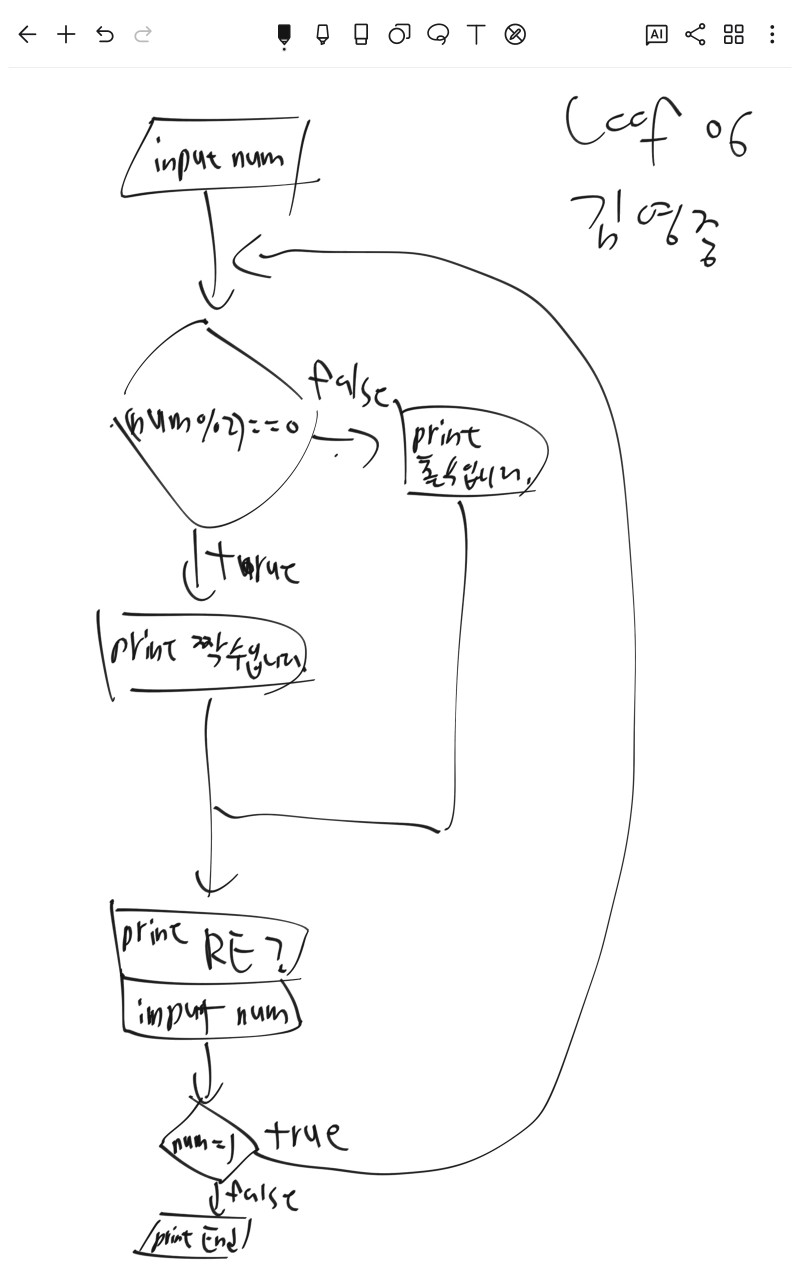 AI
T
Loof 06
김영중
input num
(num%2)==0
false
print
홀수입니다.
true
print 짝수입니다.
print RE?
input num
num=1
true
false
print End